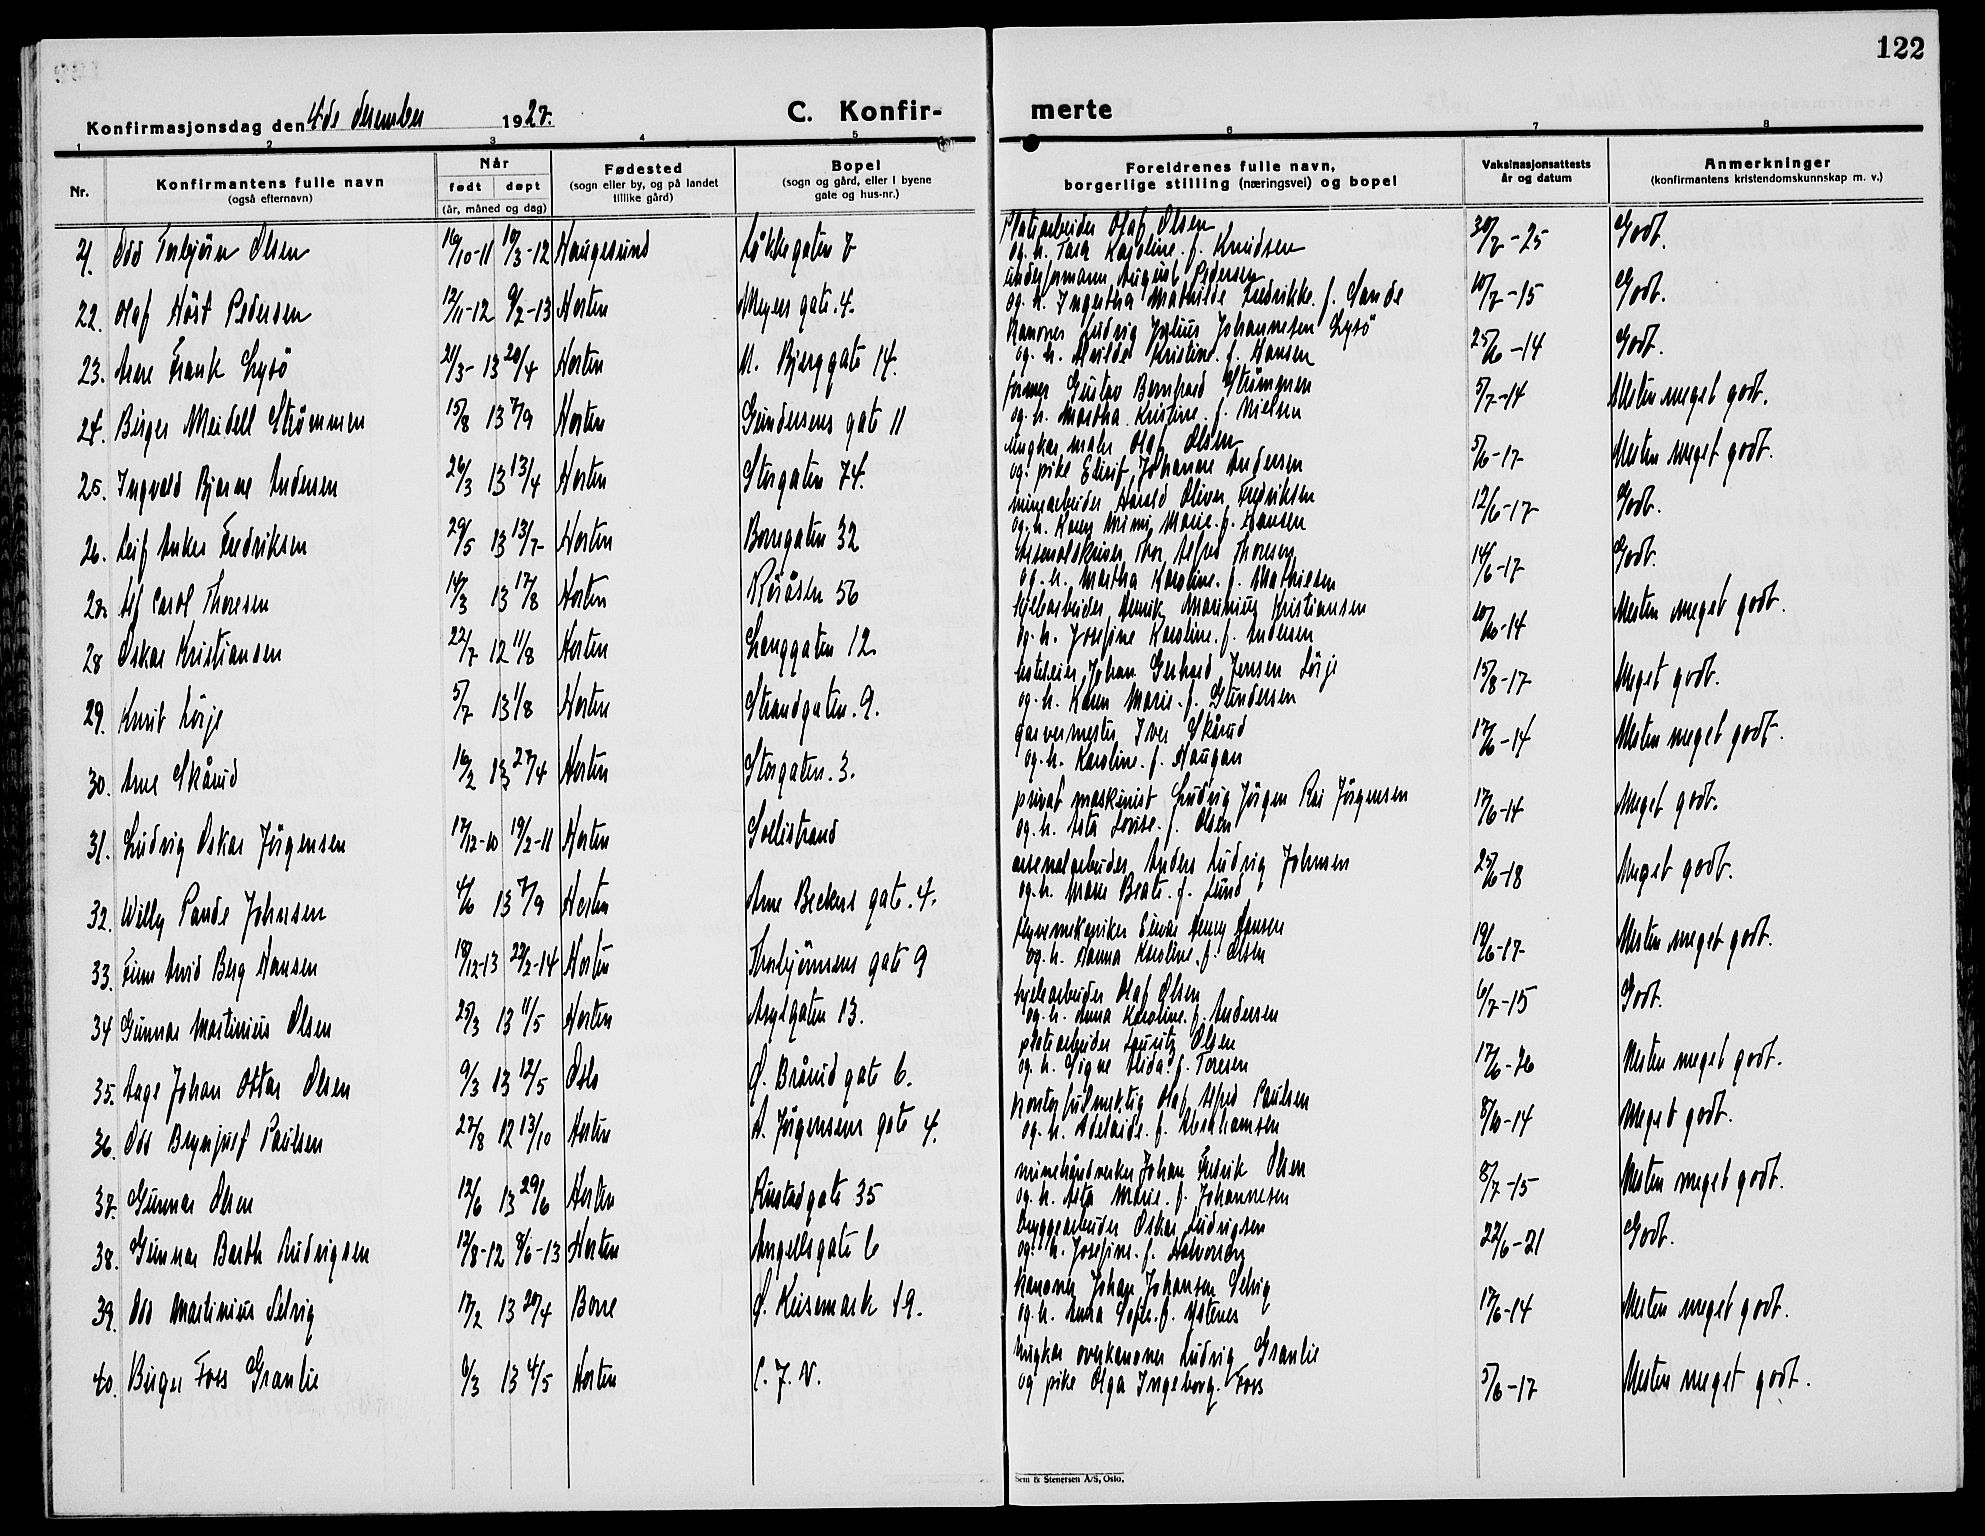 122
Konfirmasjonsdag den 4de desember 1927.
C. Konfirmerte
1 2 3 4 5 6 7 8
Nr.
Konfirmantens fulle navn
(også efternavn)
Når
født døpt
(år, måned og dag)
Fødested
(sogn eller by, og på landet
tillike gård)
Bopel
(sogn og gård, eller i byene
gate og hus-nr.)
Foreldrenes fulle navn,
borgerlige stilling (næringsvei) og bopel
Vaksinasjonsattests
år og datum
Anmerkninger
(konfirmantens kristendomskunnskap m. v.)
21. Odd Torbjörn Olsen 16/10-11 10/3-12 Haugesund Løkkegaten 7
Platearbeider Olaf Olsen
og h. Tara Karoline f. Knudsen 30/7-25 Godt.
22. Olaf Höst Pedersen 12/11-12 9/2-13 Horten Meyers gate. 4.
underformann August Pedersen
og h. Ingertha Mathilde Fredrikke f. Sande 10/7-15 Godt.
23. Arne Frank Lysö 21/3-13 20/4 Horten N. Bjerggate 14.
Kanoner Ludvig Julius Johannesen Lysö
og h. Hvilda Kristine f. Hansen 25/6-14 Godt.
24. Birger Meidell Strömmen 15/8 13 7/9 Horten Gundersens gate 11
former Gustav Bernhard Strömmen
og h. Martha Kristine f. Nielsen 5/7-14 Nesten meget godt.
25. Ingvald Bjarne Andersen 26/3 13 13/4 Horten Storgaten 74.
ungkar maler Olaf Olsen
og pike Johanne Andersen 5/6-17 Nesten meget godt.
26. Leif Anker Fredriksen 29/5 13 13/7 Horten Borregaten 32
minearbeider Harald Oliver Fredriksen
og h. Karen Mimi Marie f. Hansen 12/6-17 Godt.
27. Alf Carol Thoresen 14/3 13 17/8 Horten Röråsen 56
Arsenalskriver Thor Alfred Thoresen
og h. Martha Karoline f. Mathiesen 14/6-17 Godt.
28 Oskar Kristiansen 22/7 12 11/8 Horten Langgaten 12.
hjelearbeider Henrik Marinius Kristiansen
og h. Josefine Karoline f. Andersen 10/10-14 Nesten meget godt.
29. Knut Lörje 5/7 13 1/8 Horten Strandgaten. 9.
hoteleier Johan Gerhard Jensen Lörje
og h. Karen Marie f. Gundersen 15/8-17 Meget godt.
30. Arne Skårud 16/2 13 27/4 Horten Storgaten. 3.
garvermester Iver Skårud
og h. Karoline f. Haugan 17/6-14 Nesten meget godt.
31. Ludvig Oskar Jörgensen 17/12-10 19/2-11 Horten Sollistrand
privat maskinist Ludvig Jörgen Rai Jörgensen
og h. Asta Lovise f. Olsen 17/6-14 Meget godt.
32. Willy Pande Johnsen 4/6 13 7/9 Horten Arne Beckers gate. 4.
arsenalarbeider Anders Ludvig Johnsen
og h. Marie Beate f. Lund 25/6-18 Meget godt.
33. Finn Arvid Berg Hansen 18/12-13 22/2-14 Horten Thorbjörnsens gate 9
flyvemekaniker Einar Henry Hansen
og h. Hanna Karoline f. Olsen 19/6-17 Nesten meget godt.
34 Gunnar Martinius Olsen 25/3 13 11/5 Horten Asylgaten 13.
hjelearbeider Olaf Olsen
og h. Anna Karoline f. Andersen 6/7-15 Godt.
35. Aage Johan Ottar Olsen 9/3 13 12/5 Oslo Ö. Bråred gate 6.
platearbeider Lauritz Olsen
og h. Signe Alida f. Toresen 17/6-26 Nesten meget godt.
36. Odd Brynjulf Paulsen 27/8 12 13/10 Horten A. Jörgensens gate 4.
Kontorfullmektig Olaf Alfred Paulsen
og h. Adelaide f. Abrahamsen 8/10-14 Meget godt.
37. Gunnar Olsen 12/6 13 29/6 Horten Rustadgate 35
minehåndverker Johan Fredrik Olsen
og h. Asta Marie f. Johannesen 8/7-15 Nesten meget godt.
38. Gunnar Barth Ludvigsen 12/8-12 8/6-13 Horten Angellsgate 6
bryggearbeider Oskar Ludvigsen
og h. Josefine f. Halvorsen 22/6-21 Godt.
39. Odd Martinius Selvig 17/2 13 20/4 Borre Ö. Keisemark 19.
kanoner Johan Johansen Selvig
og h. Anna Sofie f. Ystenes 17/6-14 Nesten meget godt.
40. Birger Foss Granlie 6/3 13 4/5 Horten C. J. V.
ungkar overkanoner Ludvig Granlie
og pike Olga Ingeborg Foss 5/6-17 Nesten meget godt.
Sem & Stenersen A/S, Oslo.